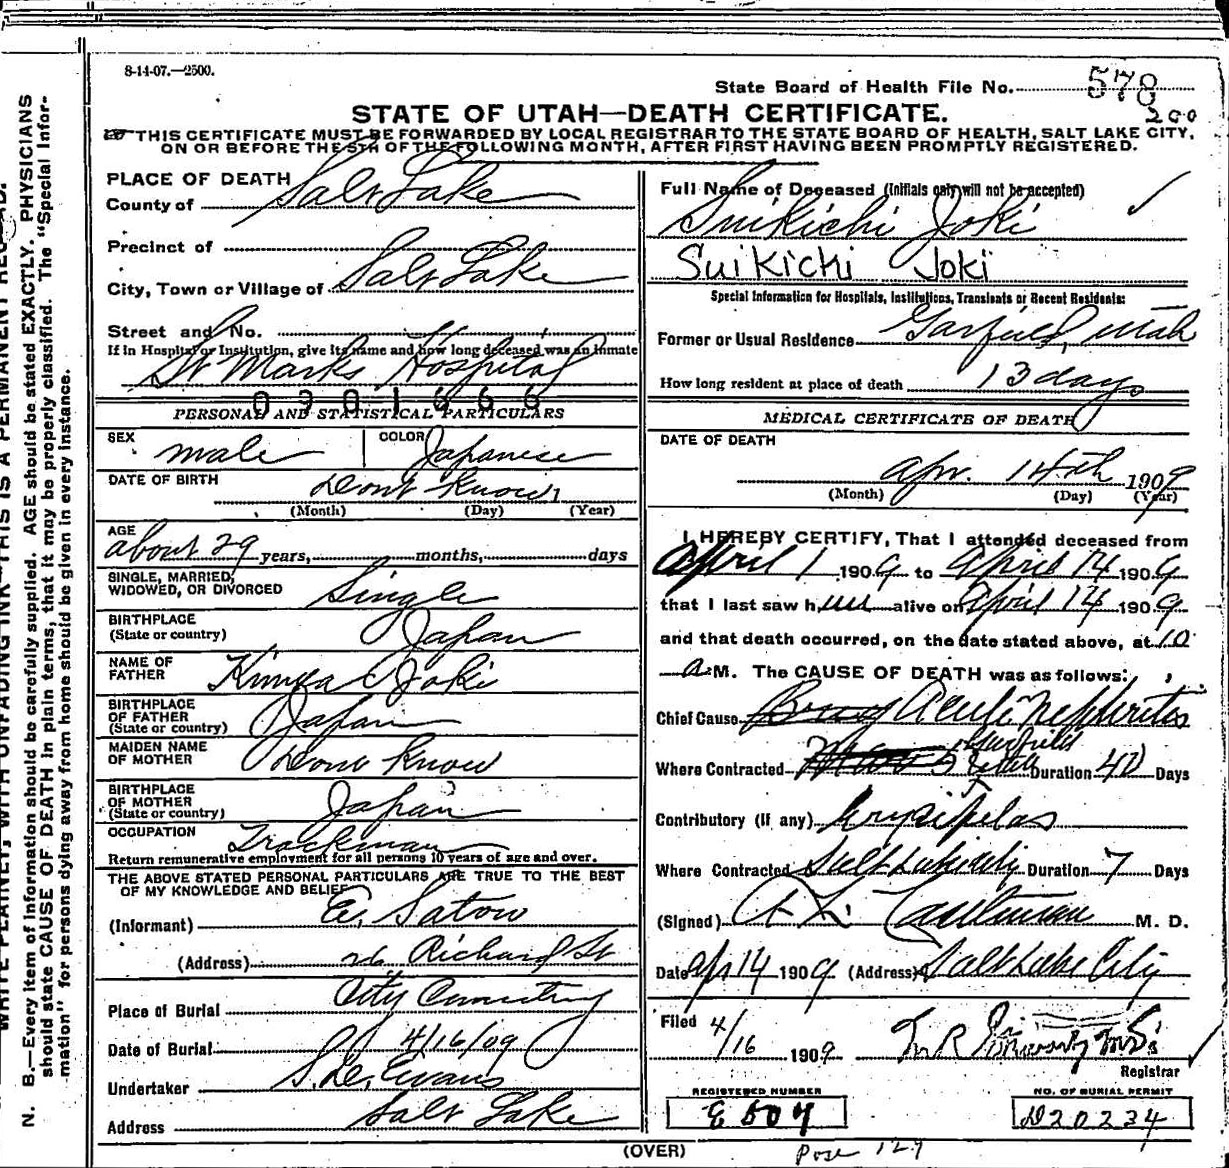 8-14-07.—2500.
State Board of Health File No. 578
200
STATE OF UTAH—DEATH CERTIFICATE.
THIS CERTIFICATE MUST BE FORWARDED BY LOCAL REGISTRAR TO THE STATE BOARD OF HEALTH, SALT LAKE CITY,
ON OR BEFORE THE 5TH OF THE FOLLOWING MONTH, AFTER FIRST HAVING BEEN PROMPTLY REGISTERED.
PLACE OF DEATH
County of Salt Lake
Precinct of
City, Town or Village of Salt Lake
Street and No.
If in Hospital or Institution, give its name and how long deceased was an inmate
St Marks Hospital
0301666
PERSONAL AND STATISTICAL PARTICULARS
SEX male COLOR Japanese
DATE OF BIRTH Dont Know
(Month) (Day) (Year)
AGE
about 29 years, months, days
SINGLE, MARRIED,
WIDOWED, OR DIVORCED Single
BIRTHPLACE
(State or country) Japan
NAME OF
FATHER Joki
BIRTHPLACE
OF FATHER
(State or country) Japan
MAIDEN NAME
OF MOTHER Dont Know
BIRTHPLACE
OF MOTHER
(State or country) Japan
OCCUPATION Trackman
Return remunerative employment for all persons 10 years of age and over.
THE ABOVE STATED PERSONAL PARTICULARS ARE TRUE TO THE BEST
OF MY KNOWLEDGE AND BELIEF
(Informant) E. Satow
(Address) 26 Richard St
Place of Burial City Cemetery
Date of Burial 4/16/09
Undertaker S. D. Evans
Address Salt Lake
Full Name of Deceased (Initials only will not be accepted)
Suikichi Joki
Suikichi Joki
Special Information for Hospitals, Institutions, Transients or Recent Residents:
Former or Usual Residence Garfield, Utah
How long resident at place of death 13 days
MEDICAL CERTIFICATE OF DEATH
DATE OF DEATH
Apr. 14th 1909
(Month) (Day) (Year)
I HEREBY CERTIFY, That I attended deceased from
April 1 1909 to April 14 1909
that I last saw him alive on April 14 1909
and that death occurred, on the date stated above, at 10
a M. The CAUSE OF DEATH was as follows:
Chief Cause Acute Nephritis
Where Contracted Garfield Duration 40 Days
Contributory (if any) Erysipelas
Where Contracted Salt Lake City Duration 7 Days
(Signed) M. D.
Date Apr 14 1909 (Address) Salt Lake City
Filed 4/16 1909
Registrar
REGISTERED NUMBER
E 504
NO. OF BURIAL PERMIT
D20234
(OVER)
129
N. B.—Every item of information should be carefully supplied. AGE should be stated EXACTLY. PHYSICIANS
should state CAUSE OF DEATH in plain terms, that it may be properly classified. The "Special Infor-
mation" for persons dying away from home should be given in every instance.
WRITE PLAINLY, WITH UNFADING INK—THIS IS A PERMANENT